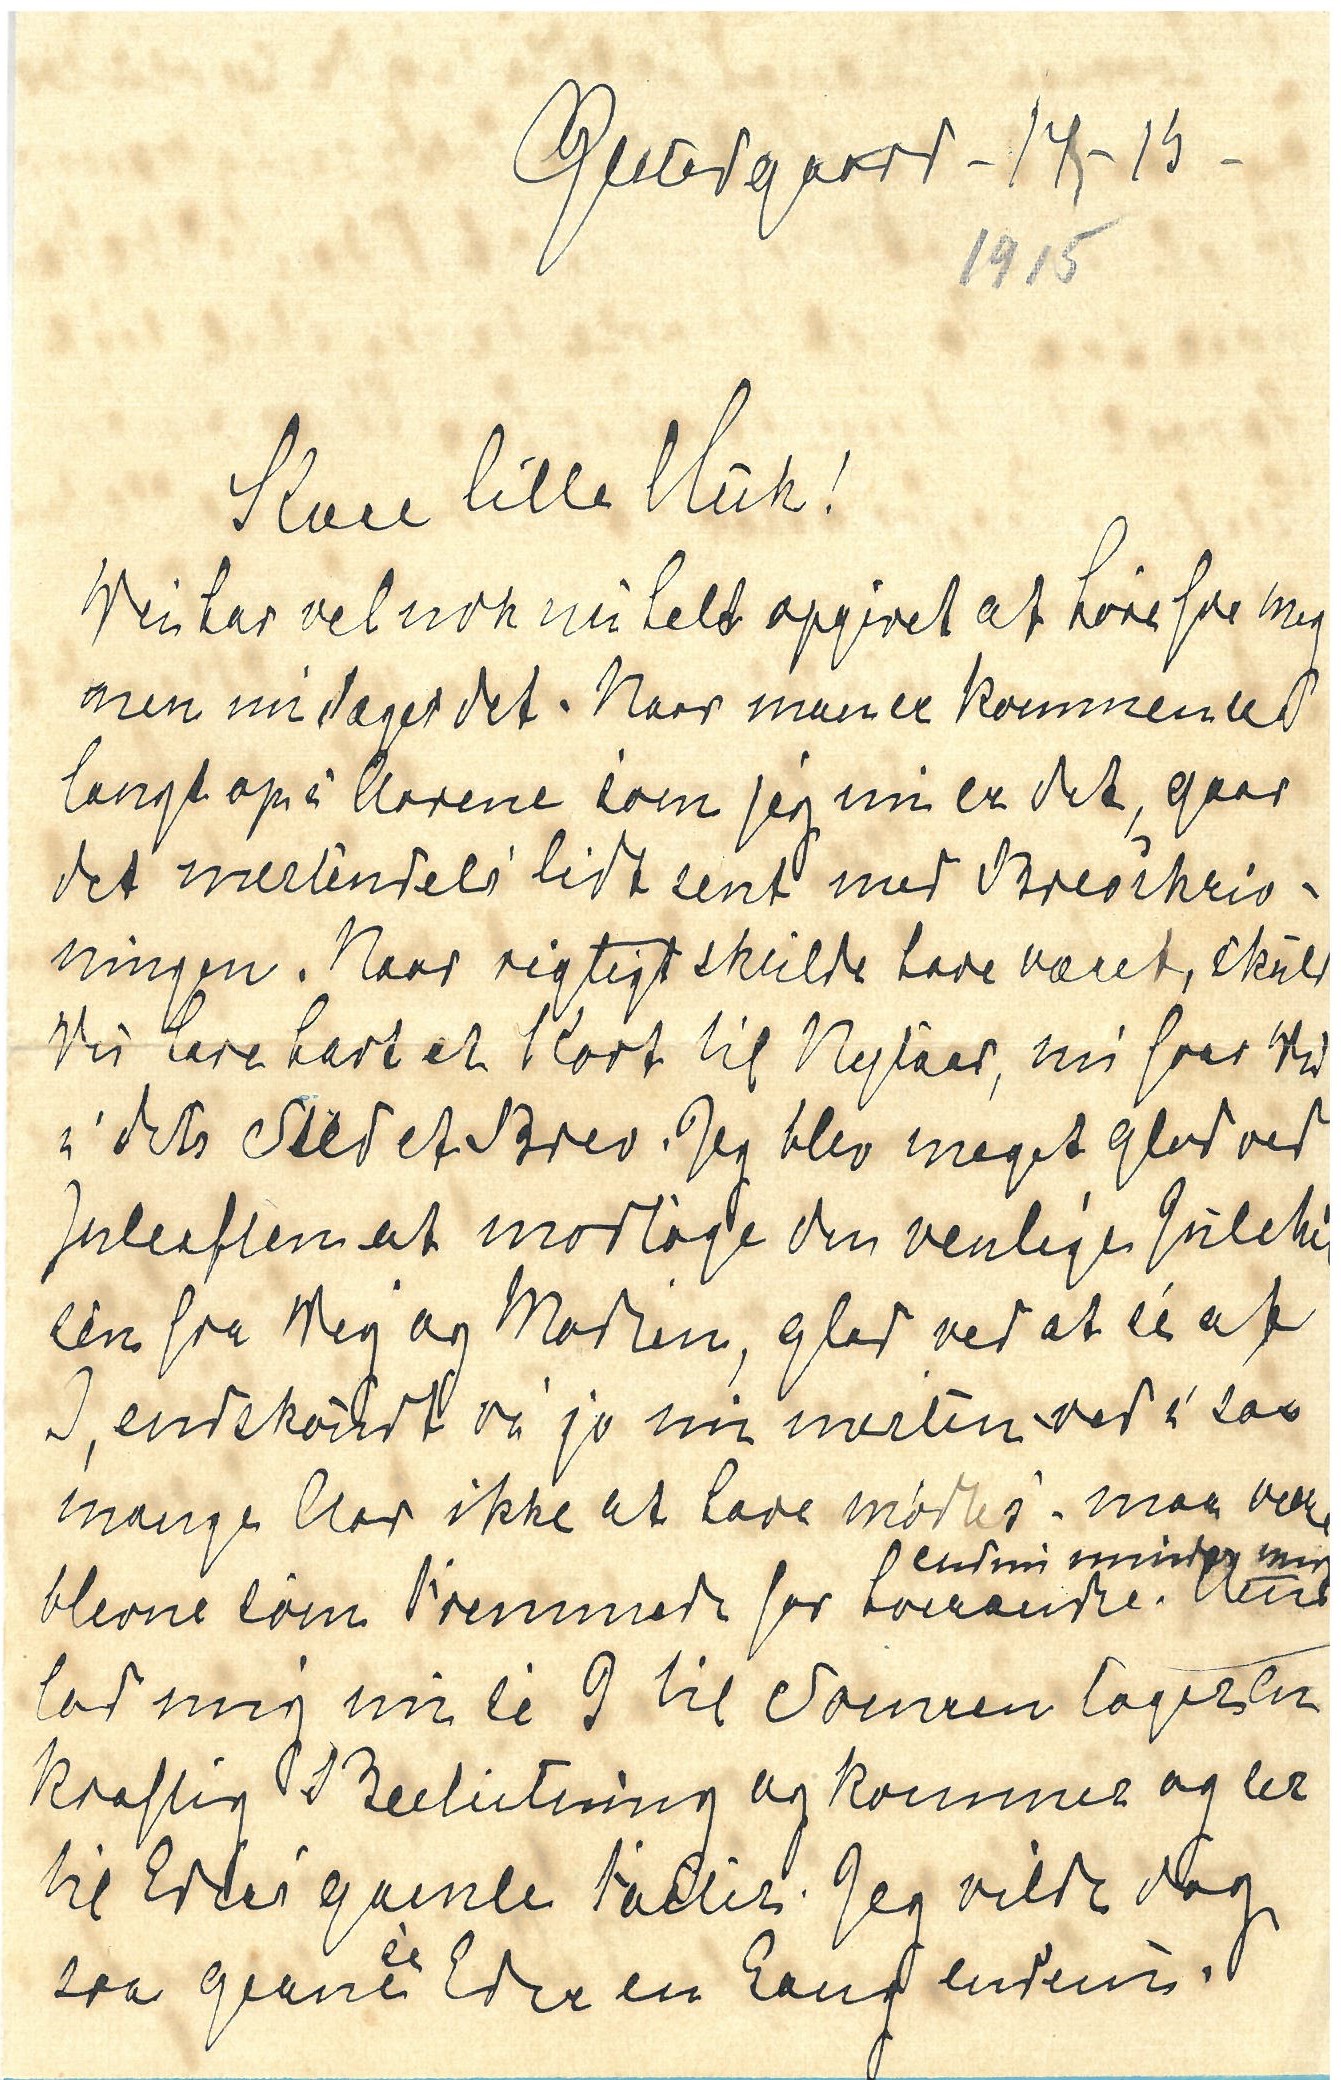 Gjestedgaard - 17/1 - 15 -
1915
Kære lille Muk!
Du har vel nok nu helt opgivet at høre fra mig
men nu tages det. Naar man er kommen ud
langt op i Aarene som jeg nu er det, gaar
det mestendels lidt sent med Brevskriv-
ningen. Naar rigtigt skulde have været, skuld
Du have havt et Kort til Nytaar, nu faar Du
i dets Sted et Brev. Jeg blev meget glad ved
Juleaften at modtage den venlige Julehil
sen fra Dig og Mad, glad ved at se at
I, endskøndt vi jo nu næsten ved i saa
mange Aar ikke at have mødtes - maa være
blevne som Fremmede for hverandre.
endnu minder mig
lad mig nu se I til Somren tager en
kraftig Beslutning og kommer og ser
til Eders gamle Faster. Jeg vilde dog
saa gerne se Eder en Gang endnu.